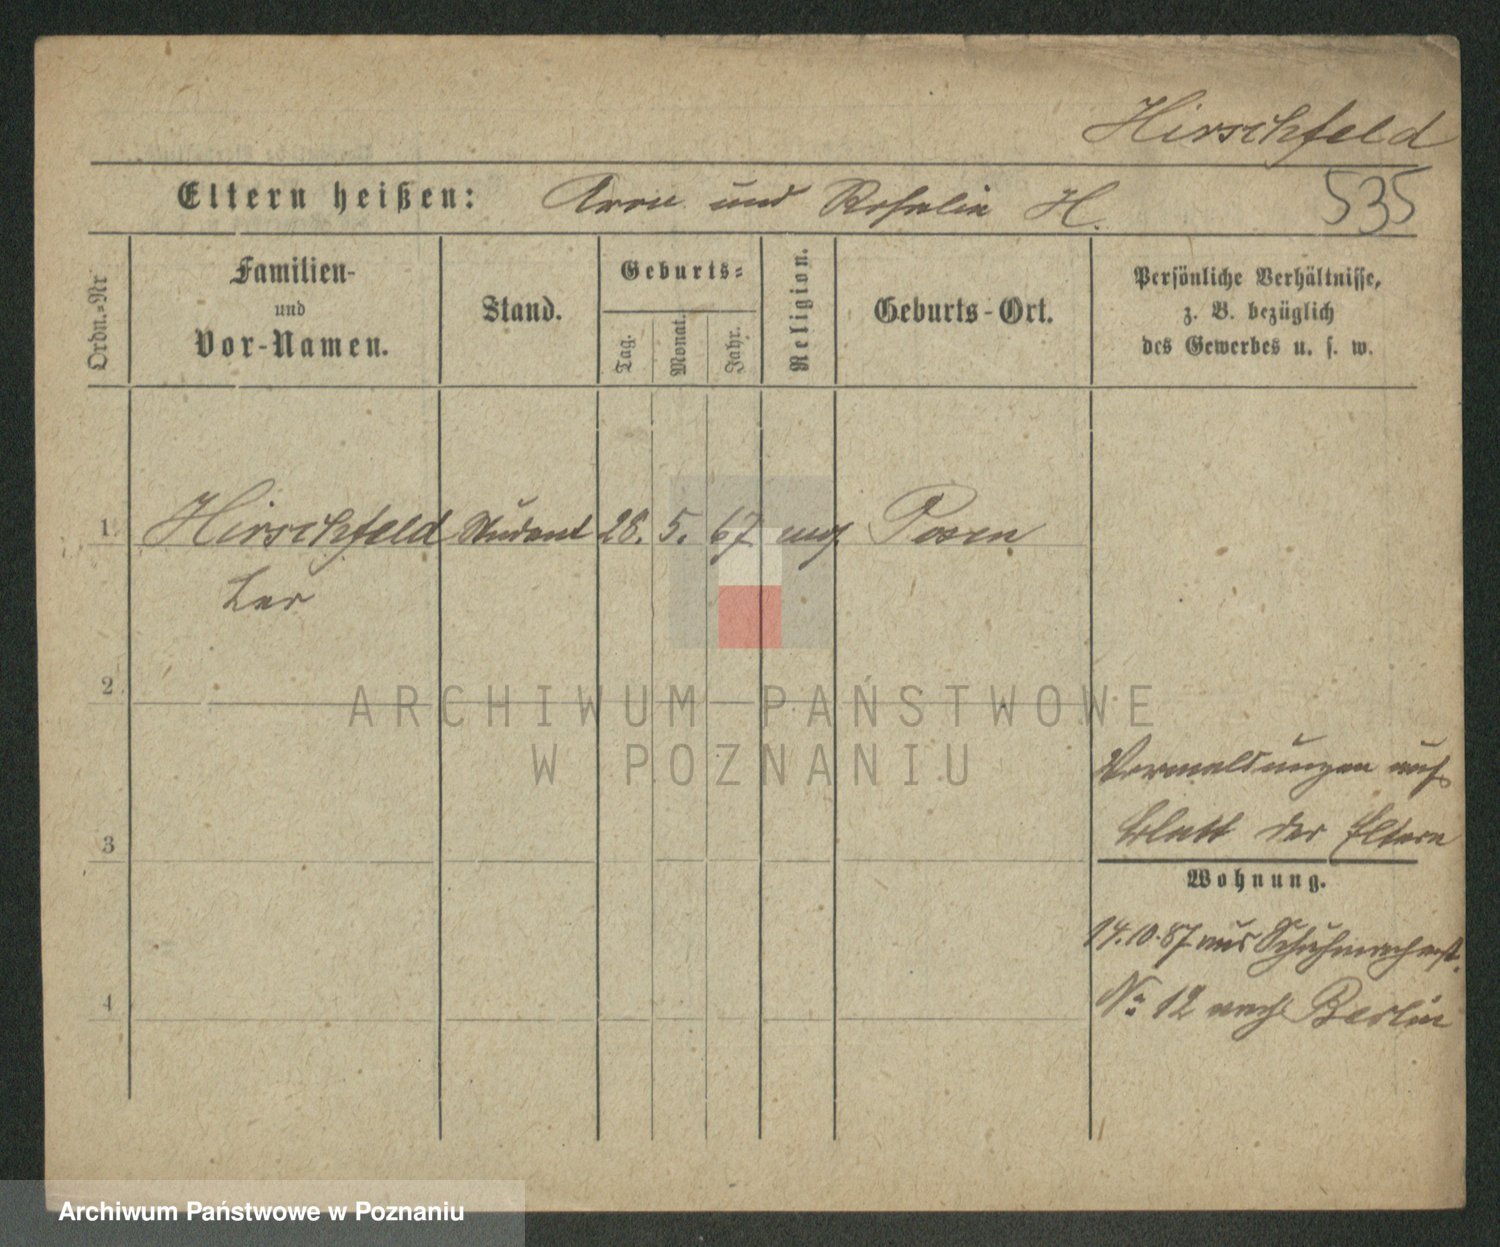 Hirschfeld
Eltern heißen: Aron und Rosalie H.
535
Ordn.-Nr
Familien-
und
Vor-Namen.
Stand.
Geburts-
Tag.
Monat.
Jahr.
Religion.
Geburts-Ort.
Persönliche Verhältnisse,
z. B. bezüglich
des Gewerbes u. s. w.
1. Hirschfeld Student 28. 5. 67 Posen
Leo
2
3
4
Vermeldungen auf
Blatt der Eltern
Wohnung.
14.10.87 aus Schuhmacherst.
No 12 nach Berlin
ARCHIWUM PAŃSTWOWE
W POZNANIU
Archiwum Państwowe w Poznaniu